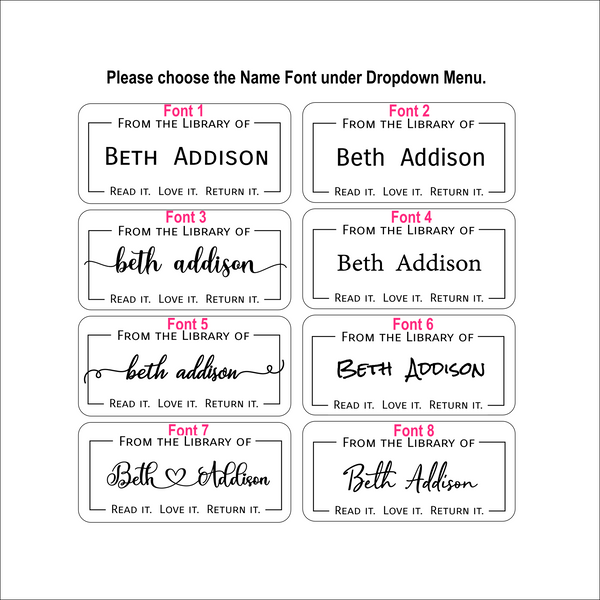 Please choose the Name Font under Dropdown Menu.
Font 1
From the Library of
Beth Addison
Read it. Love it. Return it.
Font 2
From the Library of
Beth Addison
Read it. Love it. Return it.
Font 3
From the Library of
beth addison
Read it. Love it. Return it.
Font 4
From the Library of
Beth Addison
Read it. Love it. Return it.
Font 5
From the Library of
beth addison
Read it. Love it. Return it.
Font 6
From the Library of
Beth Addison
Read it. Love it. Return it.
Font 7
From the Library of
Beth Addison
Read it. Love it. Return it.
Font 8
From the Library of
Beth Addison
Read it. Love it. Return it.